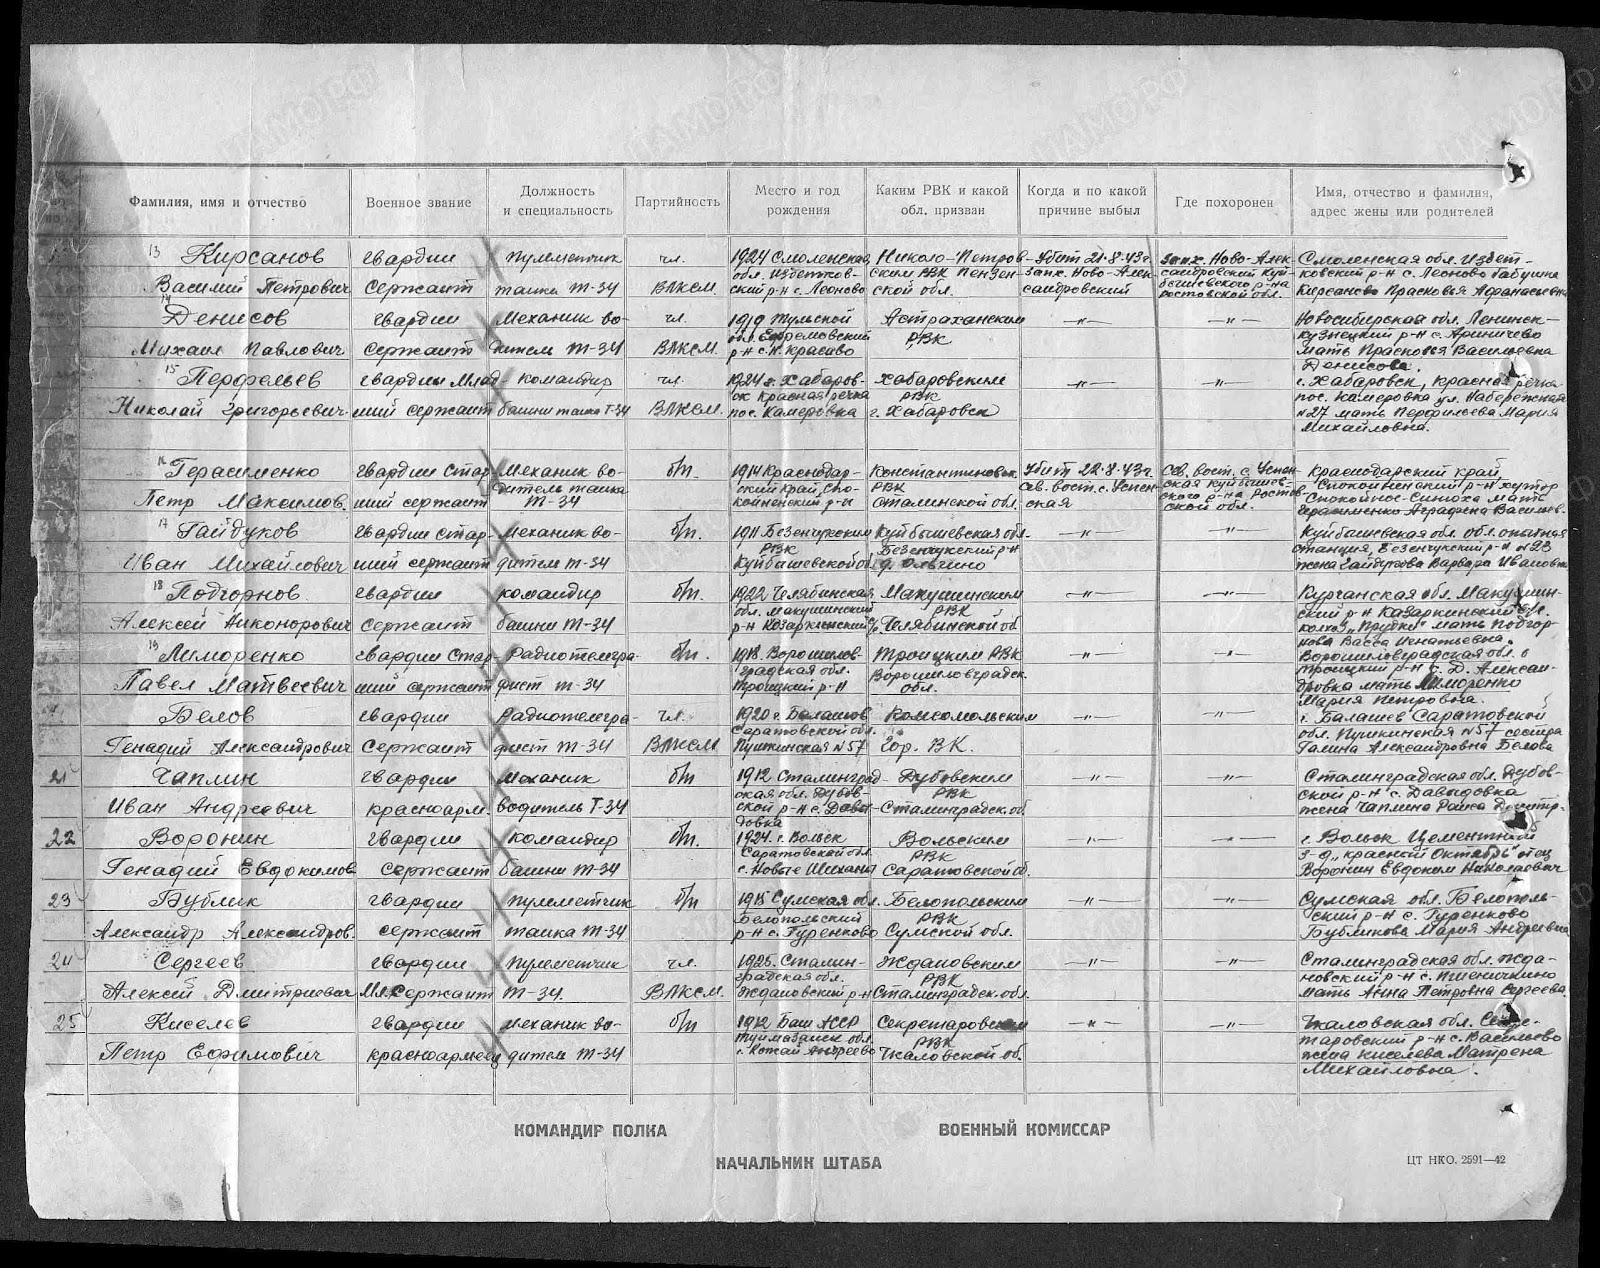 Фамилия, имя и отчество
Военное звание
Должность
и специальность
Партийность
Место и год
рождения
Каким РВК и какой
обл. призван
Когда и по какой
причине выбыл
Где похоронен
Имя, отчество и фамилия,
адрес жены или родителей
13 Кирсанов
Василий Петрович
гвардии
сержант
пулеметчик
танка Т-34
чл.
ВЛКСМ
1924 Смоленская
обл. Издетков-
ский р-н с. Леоново
Николо-Петров-
ским РВК Пензен-
ской обл.
Убит 21.8.43г.
зап. Ново-Алек-
сандровский
зап. Ново-Алек-
сандровский Куй-
бышевского р-на
Ростовской обл.
Смоленская обл. Издет-
ковский р-н с. Леоново бабушка
Кирсанова Прасковья Афанасьевна
14 Денисов
Михаил Павлович
гвардии
сержант
Механик во-
дитель Т-34
чл.
ВЛКСМ.
1919 Тульской
обл. Ефремовский
р-н с. Н. Красиво
Астраханским
РВК
—"—
—"—
Новосибирская обл. Ленинск-
кузнецкий р-н с. Ариничево
мать Прасковья Васильевна
Денисова.
15 Перфельев
Николай Григорьевич.
гвардии Млад-
ший сержант
командир
башни танка Т-34
чл.
ВЛКСМ.
1924 г. Хабаров-
ск Красная речка
пос. Камеровка
Хабаровским
РВК
г. Хабаровск
—"—
—"—
г. Хабаровск, Красная речка
пос. Камеровка ул. Набережная
№27 мать Перфильева Мария
Михайловна.
16 Герасименко
Петр Максимов.
гвардии Стар-
ший сержант
Механик во-
дитель танка
Т-34
б/п.
1914 Краснодар-
ский край, Спо-
койненский р-н
Константиновск.
РВК
Сталинской обл.
Убит 22.8.43г.
сев. вост. с. Успен-
ская
Сев. вост. с. Успен-
ская Куйбышев-
ского р-на Ростов-
ской обл.
Краснодарский край
Спокойненский р-н хутор
Спокойное-Синюха мать
Герасименко Аграфена Васильев.
17 Гайдуков
Иван Михайлович
гвардии стар-
ший сержант
Механик во-
дитель Т-34
б/п.
1911 Безенчукским
РВК
Куйбышевской обл.
Куйбышевская обл.
Безенчукский р-н
д. Ольгино
—"—
"
Куйбышевская обл. обл. опытная
станция, Безенчукский р-н №23
жена Гайдукова Варвара Ивановна
18 Подгорнов
Алексей Никонорович
гвардии
сержант
командир
башни Т-34
б/п.
1922 Челябинская
обл. Макушинский
р-н Козаркинский с/с
Макушинским
РВК
Челябинской об.
—"—
—"—
Курганская обл. Макушин-
ский р-н Казаркинский с/с.
колхоз "Трудки" мать Подгор-
нова Васса Игнатьевна.
19 Лиморенко
Павел Матвеевич
гвардии Стар-
ший сержант
Радиотелегра-
фист Т-34
б/п.
1918 Ворошилов-
градская обл.
Троицкий р-н
Троицким РВК
Ворошиловградск.
обл.
"
"
Ворошиловградская обл.
Троицкий р-н с. Д. Алексан-
дровка мать Лиморенко
Мария Петровна.
Белов
Генадий Александрович
гвардии
Сержант
Радиотелегра-
фист Т-34
чл.
ВЛКСМ
1920 г. Балашов
Саратовской обл.
Пушкинская №57
Комсомольским
Гор. ВК.
—"—
—"—
г. Балашев Саратовской
обл. Пушкинская №57 сестра
Галина Александровна Белова
21 Чаплин
Иван Андреевич
гвардии
красноарм.
Механик
водитель Т-34
б/п
1912 Сталинград-
ская обл. Дубов-
ской р-н с. Давы-
довка
Дубовским
РВК
Сталинградск. об.
—"—
—"—
Сталинградская обл. Дубов-
ской р-н с. Давыдовка
жена Чаплина Раиса Дмитр.
22 Воронин
Генадий Евдокимов
гвардии
сержант
командир
башни Т-34
б/п.
1924. г. Вольск
Саратовской обл.
с. Новые Шиханы
Вольским
РВК
Саратовской об.
—"—
—"—
г. Вольск Цементный
з-д "красный Октябрь" отец
Воронин Евдоким Николаевич
23 Бублик
Александр Александров.
гвардии
сержант
пулеметчик
танка Т-34
б/п
1915 Сумская обл.
Белопольский
р-н с. Гуренково
Белопольским
РВК
Сумской обл.
—"—
—"—
Сумская обл. Белополь-
ский р-н с. Гуренково
Бубликова Мария Андреевна
24 Сергеев
Алексей Дмитриевич
гвардии
Мл. Сержант
пулеметчик
Т-34.
чл.
ВЛКСМ.
1925. Сталин-
градская обл.
Ждановский р-н
Ждановским
РВК
Сталинградск. обл.
—"—
—"—
Сталинградская обл. Жда-
новский р-н с. Пшеничкино
мать Анна Петровна Сергеева.
25 Киселев
Петр Ефимович
гвардии
красноармеец
механик во-
дитель Т-34
б/п
1912 Баш АССР
Туймазинск обл.
с. Кожай Андреево
Секретаровским
РВК
Чкаловской об.
—"—
—"—
Чкаловская обл. Секре-
таровский р-н с. Васильево
жена Киселева Матрена
Михайловна.
КОМАНДИР ПОЛКА
ВОЕННЫЙ КОМИССАР
НАЧАЛЬНИК ШТАБА
ЦТ НКО. 2591—42